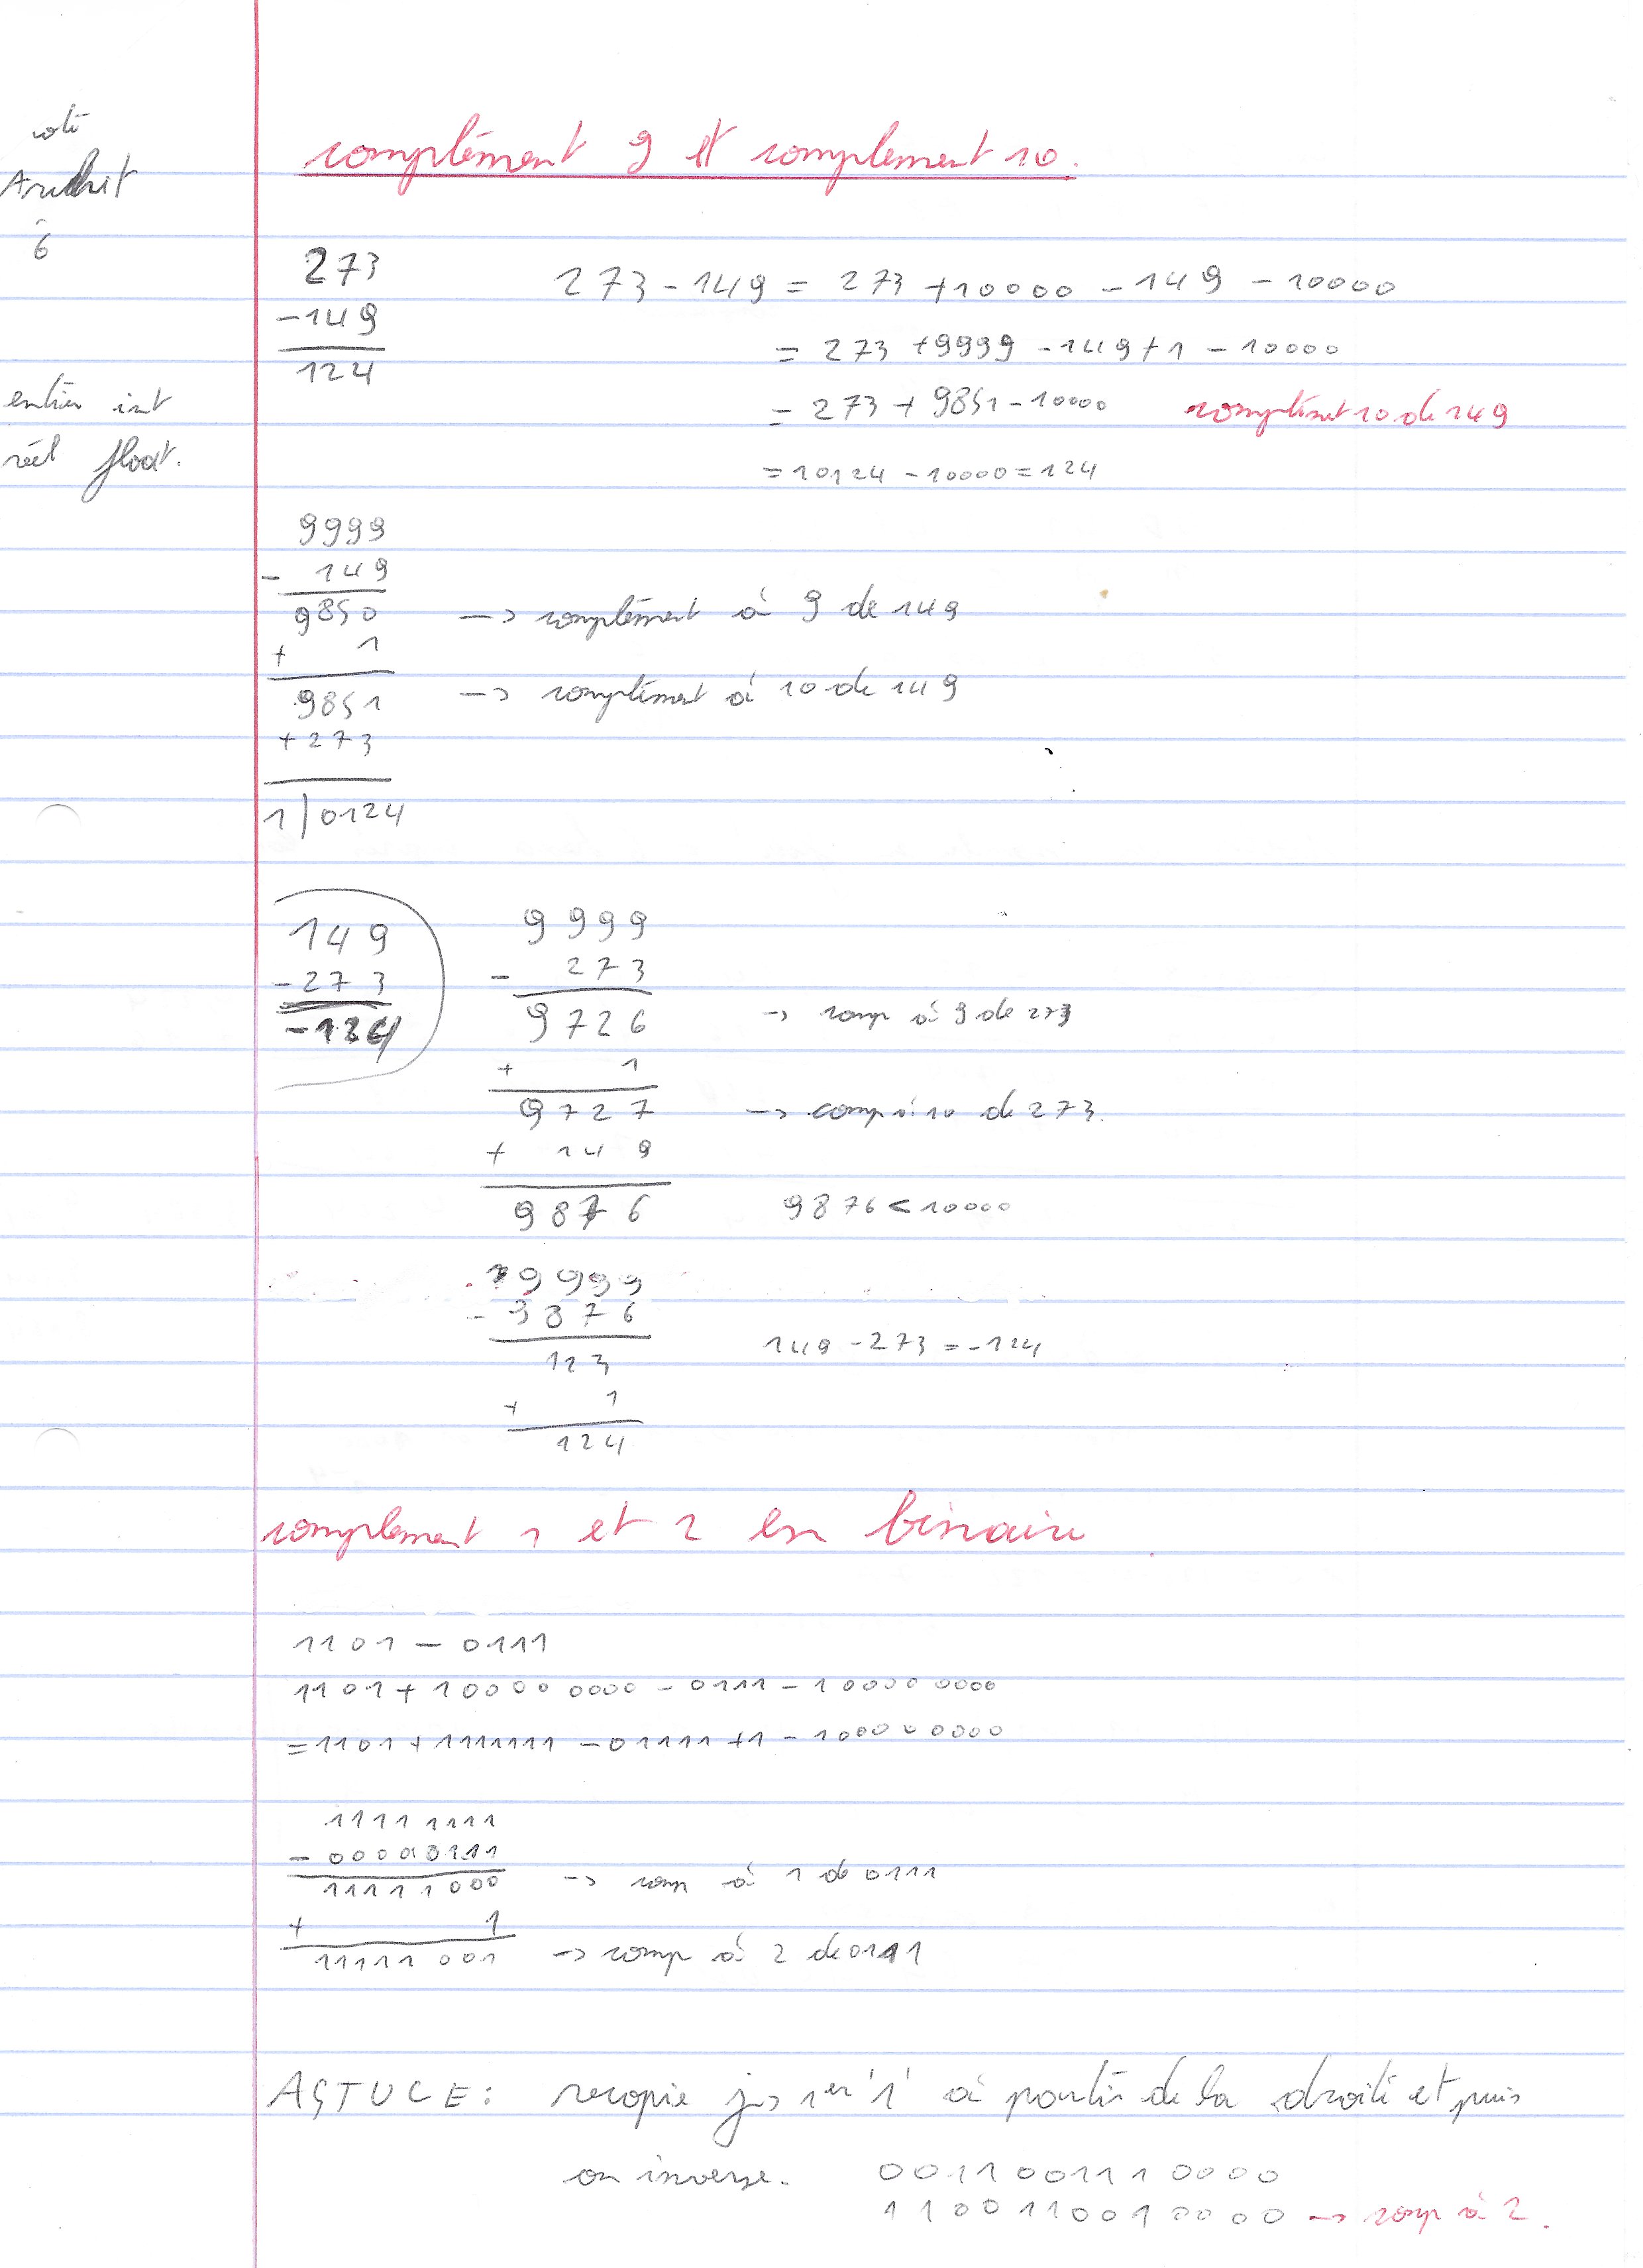 complément 9 et complement 10.
6
273
-149
124
273 - 149 = 273 + 10000 - 149 - 10000
= 273 + 9999 - 149 + 1 - 10000
= 273 + 9851 - 10000 complément 10 de 149
= 10124 - 10000 = 124
entier int
réel float.
9999
- 149
9850 -> complément à 9 de 149
+ 1
9851 -> complément à 10 de 149
+273
1|0124
149
-273
-124
9999
- 273
9726 -> comp à 9 de 273
+ 1
9727 -> comp à 10 de 273.
+ 149
9876 9876 < 10000
9999
- 9876
123 149 - 273 = -124
+ 1
124
complement 1 et 2 en binaire
1101 - 0111
1101 + 100000000 - 0111 - 100000000
= 1101 + 1111111 - 01111 + 1 - 100000000
11111111
- 00000111
11111000 -> comp à 1 de 0111
+ 1
11111001 -> comp à 2 de 0111
ASTUCE : recopie jus 1er '1' à partir de la droite et puis
on inverse. 0011001110000
1100110010000 -> comp à 2.